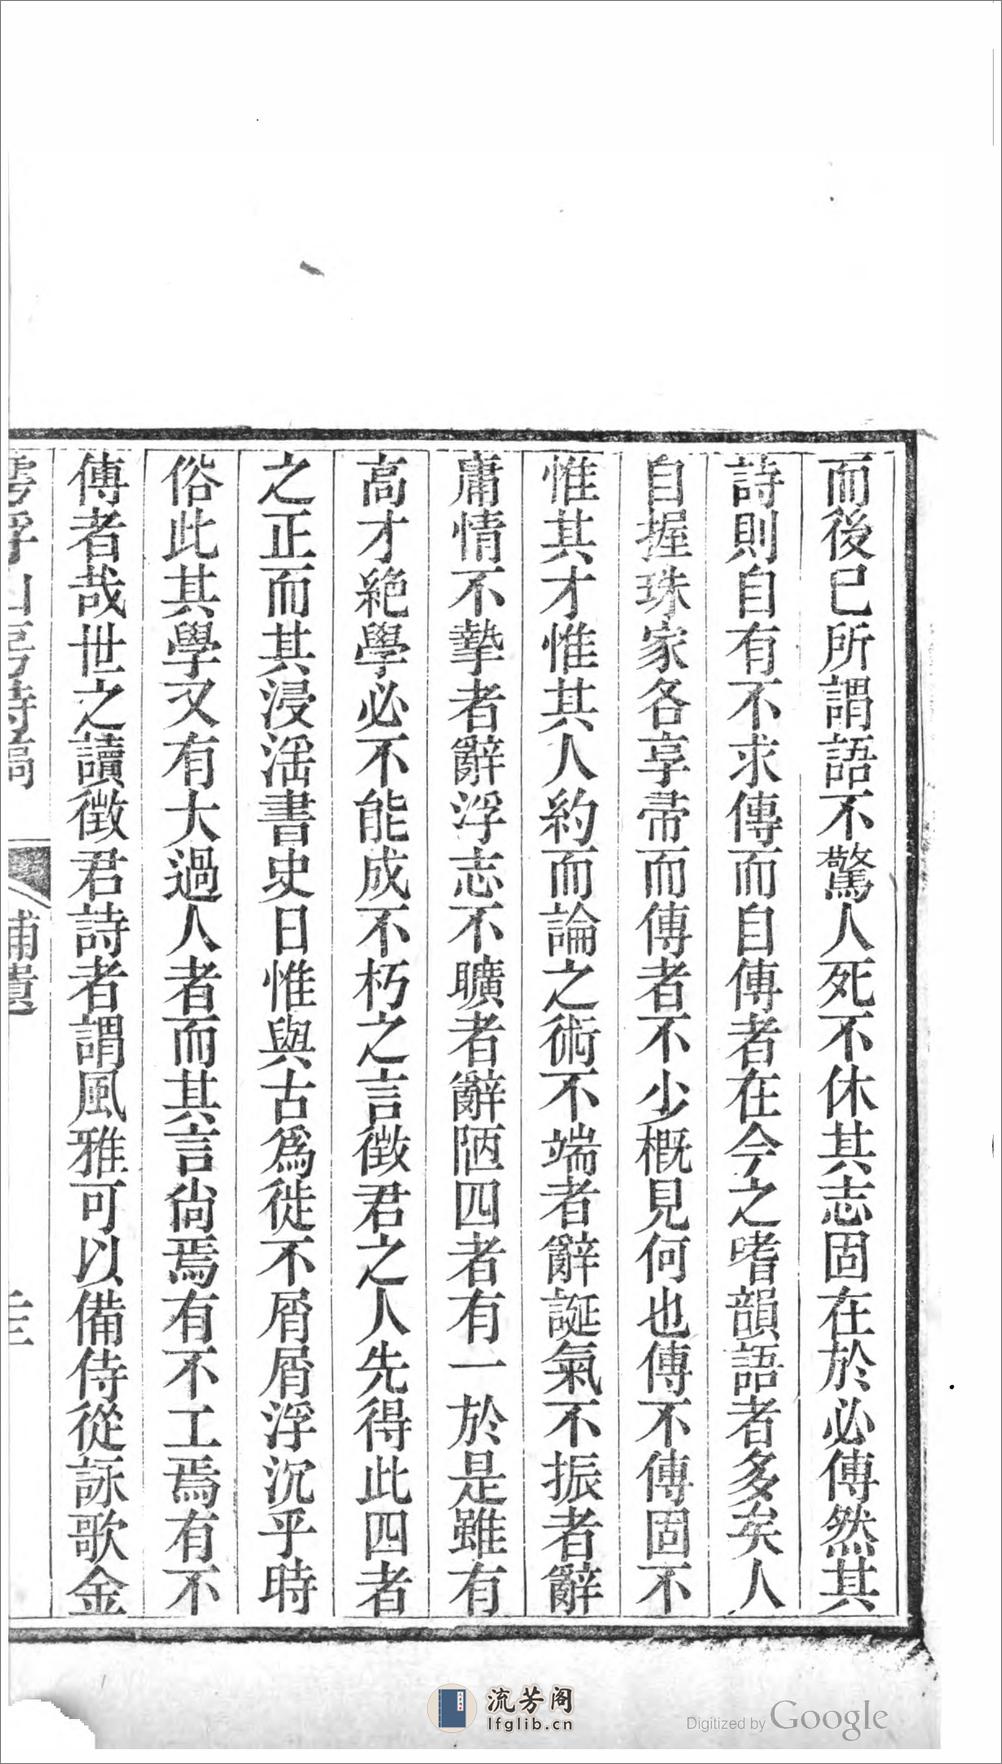 而後已所謂語不驚人死不休其志固在於必傳然其
詩則自有不求傳而自傳者在今之嗜韻語者多矣人
自握珠家各享帚而傳者不少概見何也傳不傳固不
惟其才惟其人約而論之術不端者辭誕氣不振者辭
庸情不摯者辭浮志不曠者辭陋四者有一於是雖有
高才絕學必不能成不朽之言徵君之人先得此四者
之正而其浸淫書史日惟與古爲徙不屑屑浮沉乎時
俗此其學又有大過人者而其言尙焉有不工焉有不
傳者哉世之讀徵君詩者謂風雅可以備侍從詠歌金
山房詩稿
補遺
流芳阁
lfglib.cn
Digitized by Google